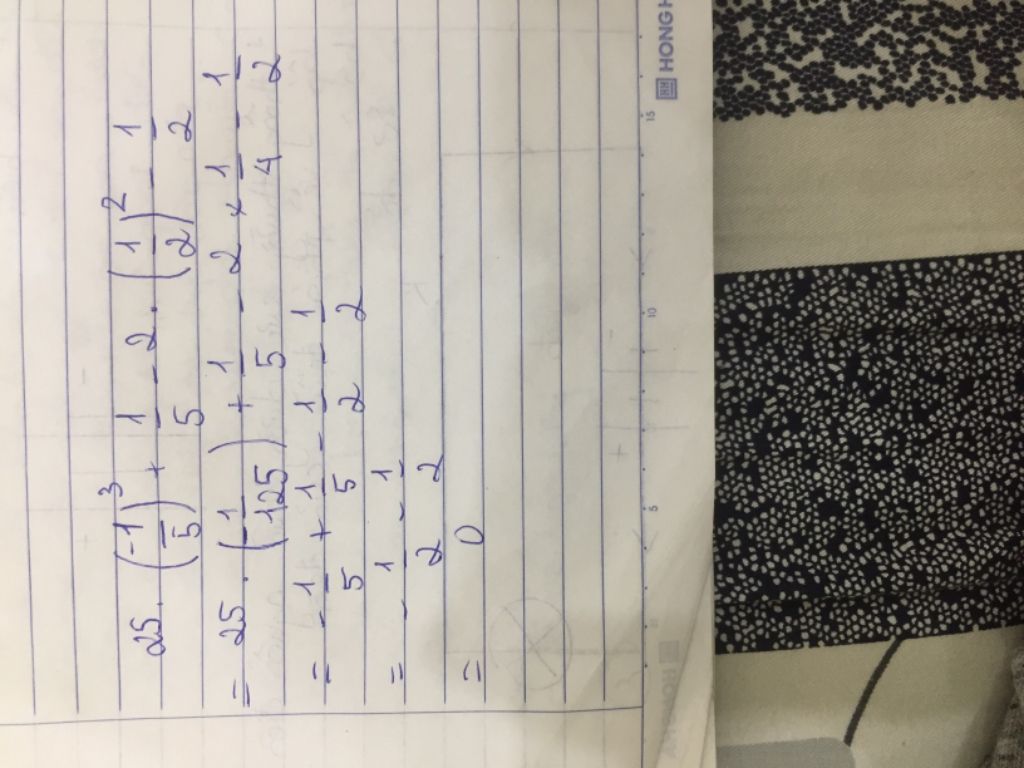 25. (-1/5)^3 + 1/5 - 2. (1/2)^2 - 1/2
= 25. (-1/125) + 1/5 - 2 × 1/4 - 1/2
= -1/5 + 1/5 - 1/2 - 1/2
= -1/2 - 1/2
= 0
HH HONG H
5 10 15